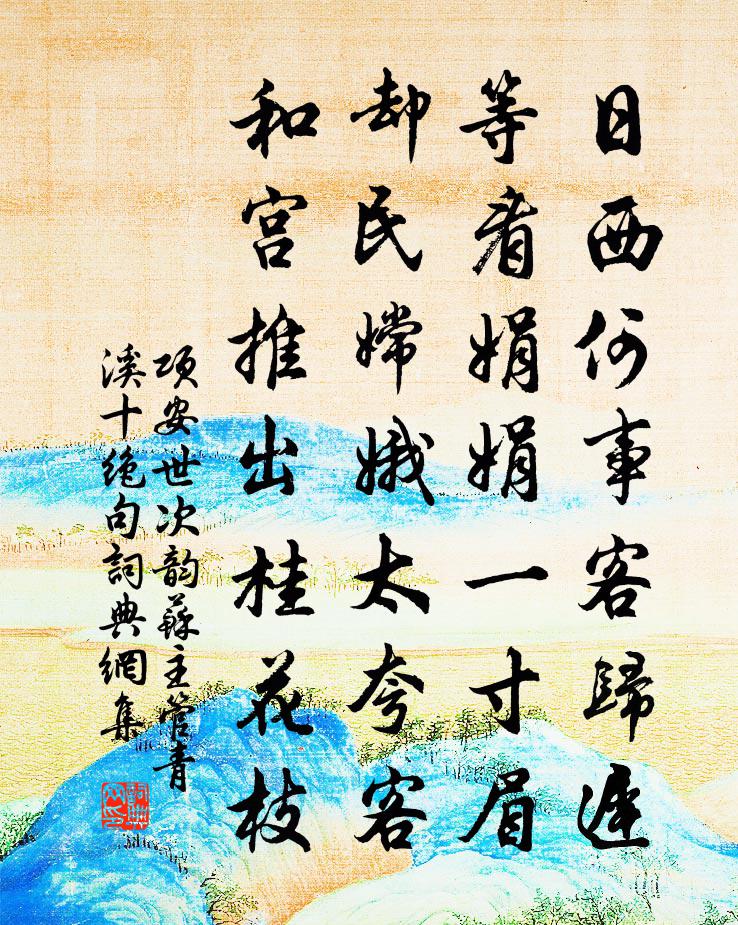 日西何事客歸遲
等看娟娟一寸眉
却民嫦娥太夸客
和宫推出桂花枝
項安世次韵蘇主管青
溪十絶句詞典網集